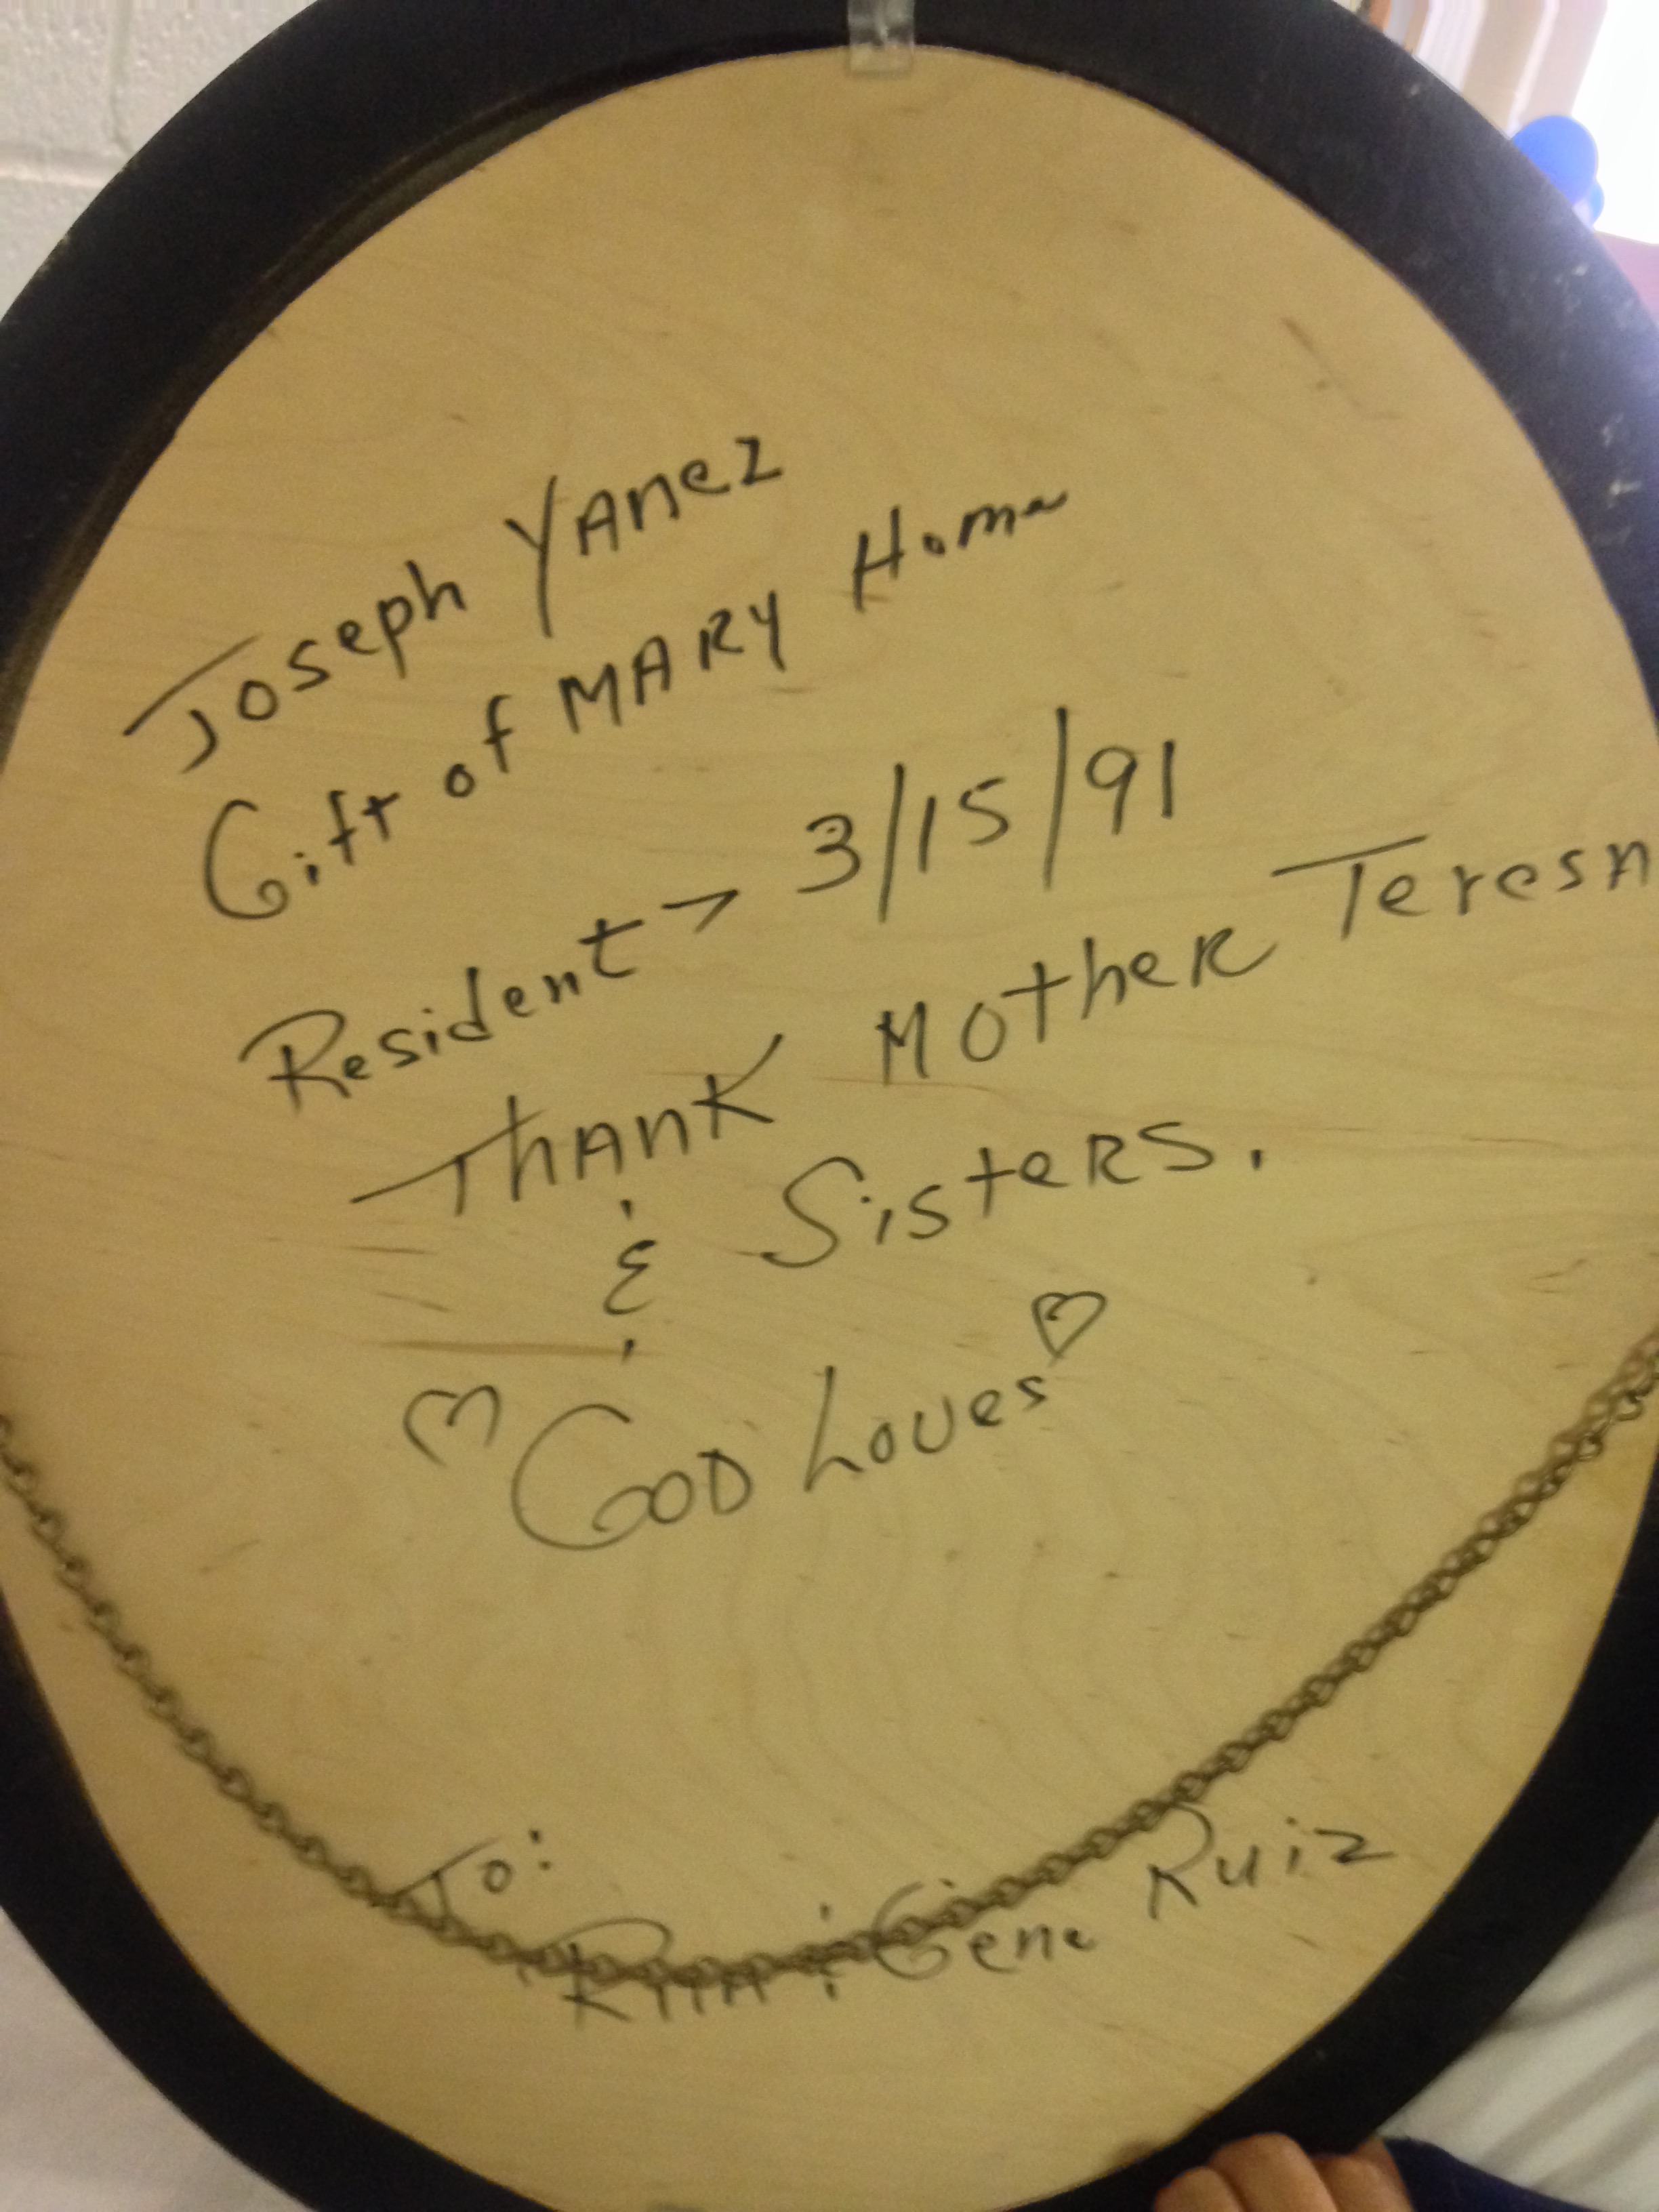 Joseph YAnez
Gift of MARY Home
Resident → 3/15/91
ThAnK MotheR TeresA
& SisteRS.
♡ GOD Loves ♡
To:
RitA & Gene Ruiz